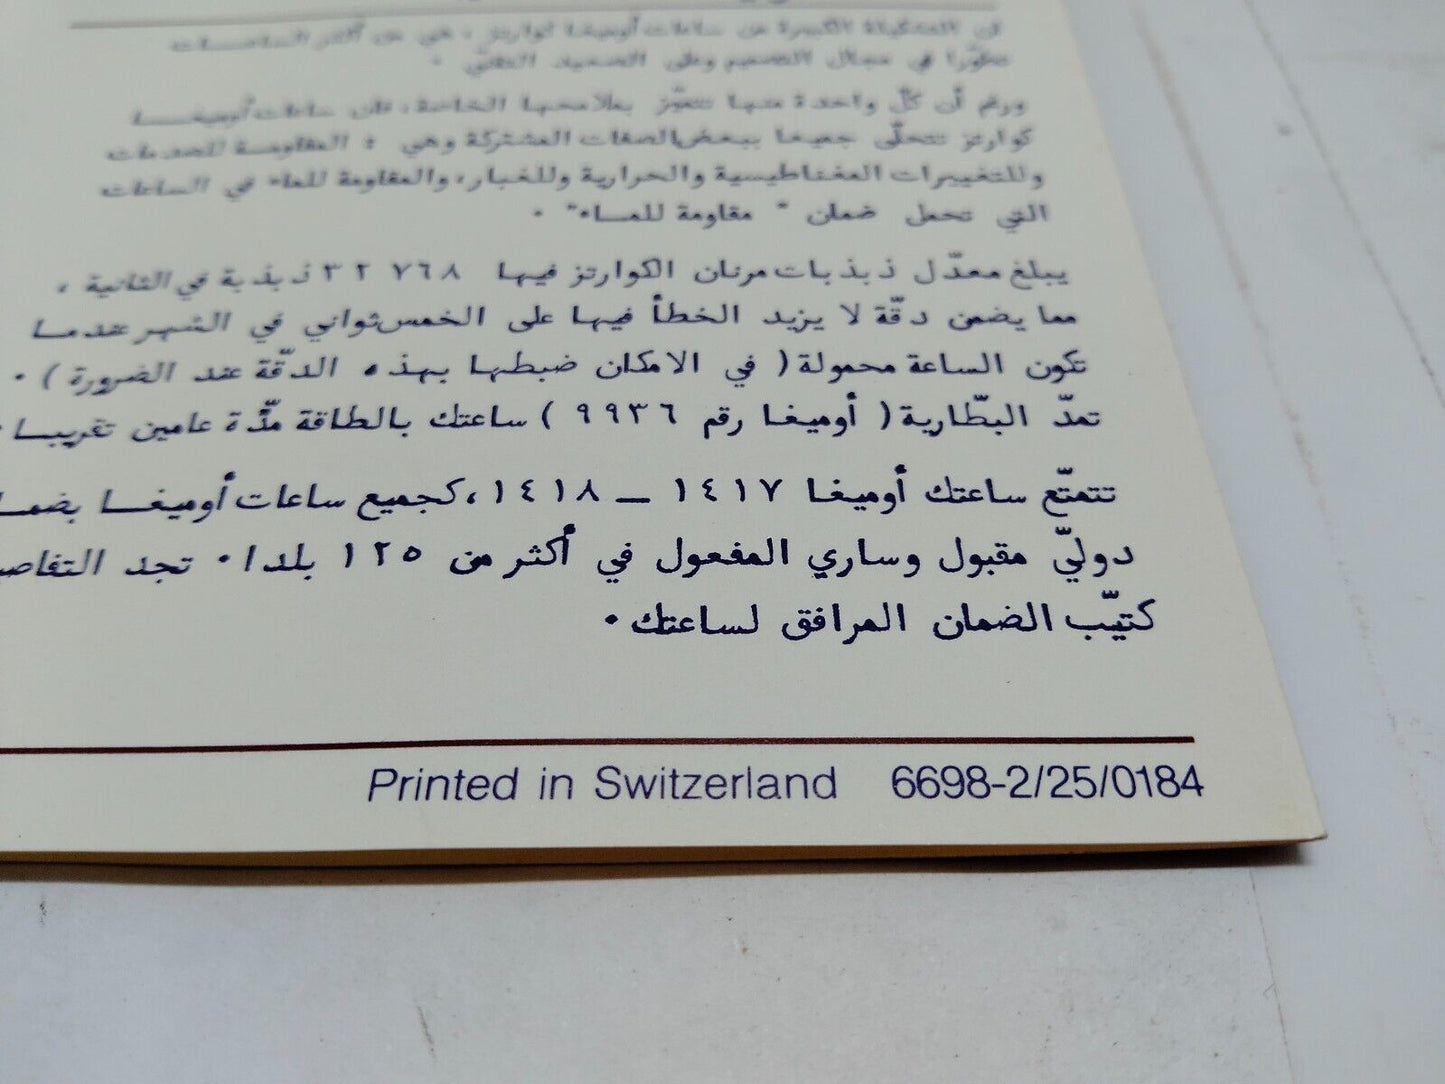 في التشكيلة الكبيرة من ساعات أوميغا كوارتز ، هي من أكثر الساعـــات
تطوّرا في مجال التصميم وعلى الصعيد التقنّي .
ورغم أن كلّ واحدة منها تتميّز بملامحها الخاصة ، فان ساعات أوميغـــا
كوارتز تتحلّى جميعا ببعض الصفات المشتركة وهي : المقاومـة للصدمات
وللتغييرات المغناطيسية والحرارية وللغبار ، والمقاومة للماء في الساعات
التي تحمل ضمان " مقاومة للمـاء" .
يبلغ معدّل ذبذبات مرنان الكوارتز فيها ٣٢ ٧٦٨ ذبذبة في الثانية ،
مما يضمن دقّة لا يزيد الخطأ فيها على الخمس ثواني في الشهر عندما
تكون الساعة محمولة ( في الامكان ضبطها بهذه الدقّة عند الضرورة ) .
تمدّ البطّارية ( أوميغا رقم ٩٩٣٦ ) ساعتك بالطاقة مدّة عامين تقريبـا .
تتمتّع ساعتك أوميغا ١٤١٧ ـ ١٤١٨ ، كجميع ساعات أوميغـا
دوليّ مقبول وساري المفعول في أكثر من ١٢٥ بلدا . تجد
كتيّب الضمان المرافق لساعتك .
Printed in Switzerland 6698-2/25/0184